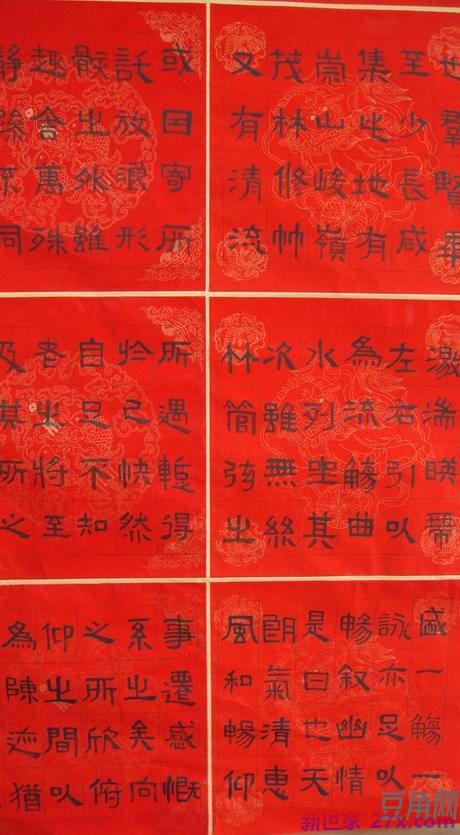 也羣賢畢
至少長咸
集此地有
崇山峻嶺
茂林修竹
又有清流
激湍暎帶
左右引以
為流觴曲
水列坐其
次雖無絲
竹管弦之
盛一觴一
詠亦足以
暢叙幽情
是日也天
朗氣清惠
風和暢仰
或因寄所
託放浪形
骸之外雖
趣舍萬殊
靜躁不同
所遇蹔得
於己快然
自足不知
老之將至
及其所之
事遷感慨
系之矣向
之所欣俯
仰之間以
為陳迹猶
豆角网
新世家 27x.com